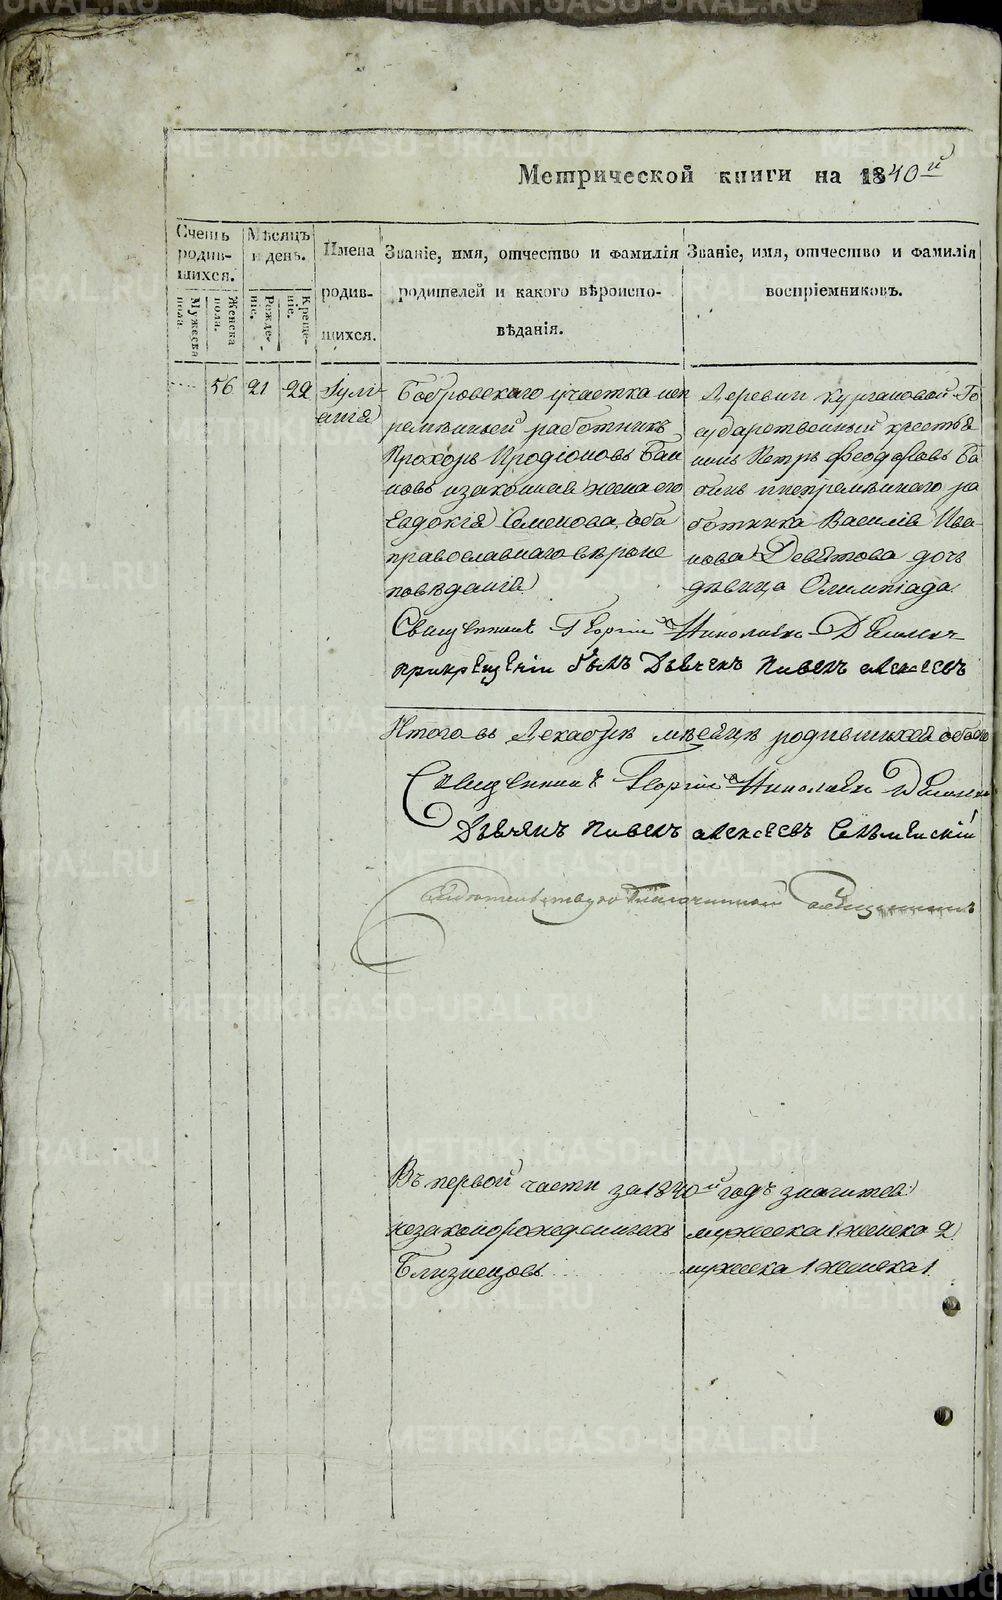 Метрической книги на 1840й
Счетъ родив-шихся.
Мужеска пола.
Женска пола.
Мѣсяцъ и день.
Рожде-ніе.
Креще-ніе.
Имена родив-шихся.
Званіе, имя, отчество и фамилія родителей и какого вѣроиспо-вѣданія.
Званіе, имя, отчество и фамилія воспріемниковъ.
56 21 22 Іулі
анія
Бобровскаго участка неп
ремѣнный работникъ
Прохоръ Иродіоновъ
новъ изаконная жена его
Евдокія Семенова, оба
православнаго вѣроис
повѣданія
Деревни Кургановой Го
сударственный крестья
нинъ Петръ Феодоровъ Ба
бинъ инепремѣннаго ра
ботника Василія Ива
нова Девятова дочь
дѣвица Олимпіада
Священникъ Георгій Николаевъ
Прикрещеніи былъ Дьячекъ Павелъ Алексеевъ
Итого въ Декабрѣ мѣсяцѣ родившихся обоего
Священникъ Георгій Николаевъ
Дьячекъ Павелъ Алексеевъ
Свидетельствовалъ Благочинный Священникъ
Въ первой части за 1840й годъ значится:
незаконорожденныхъ мужеска 1 женска 2
Близнецовъ мужеска 1 женска 1
METRIKI.GASO-URAL.RU